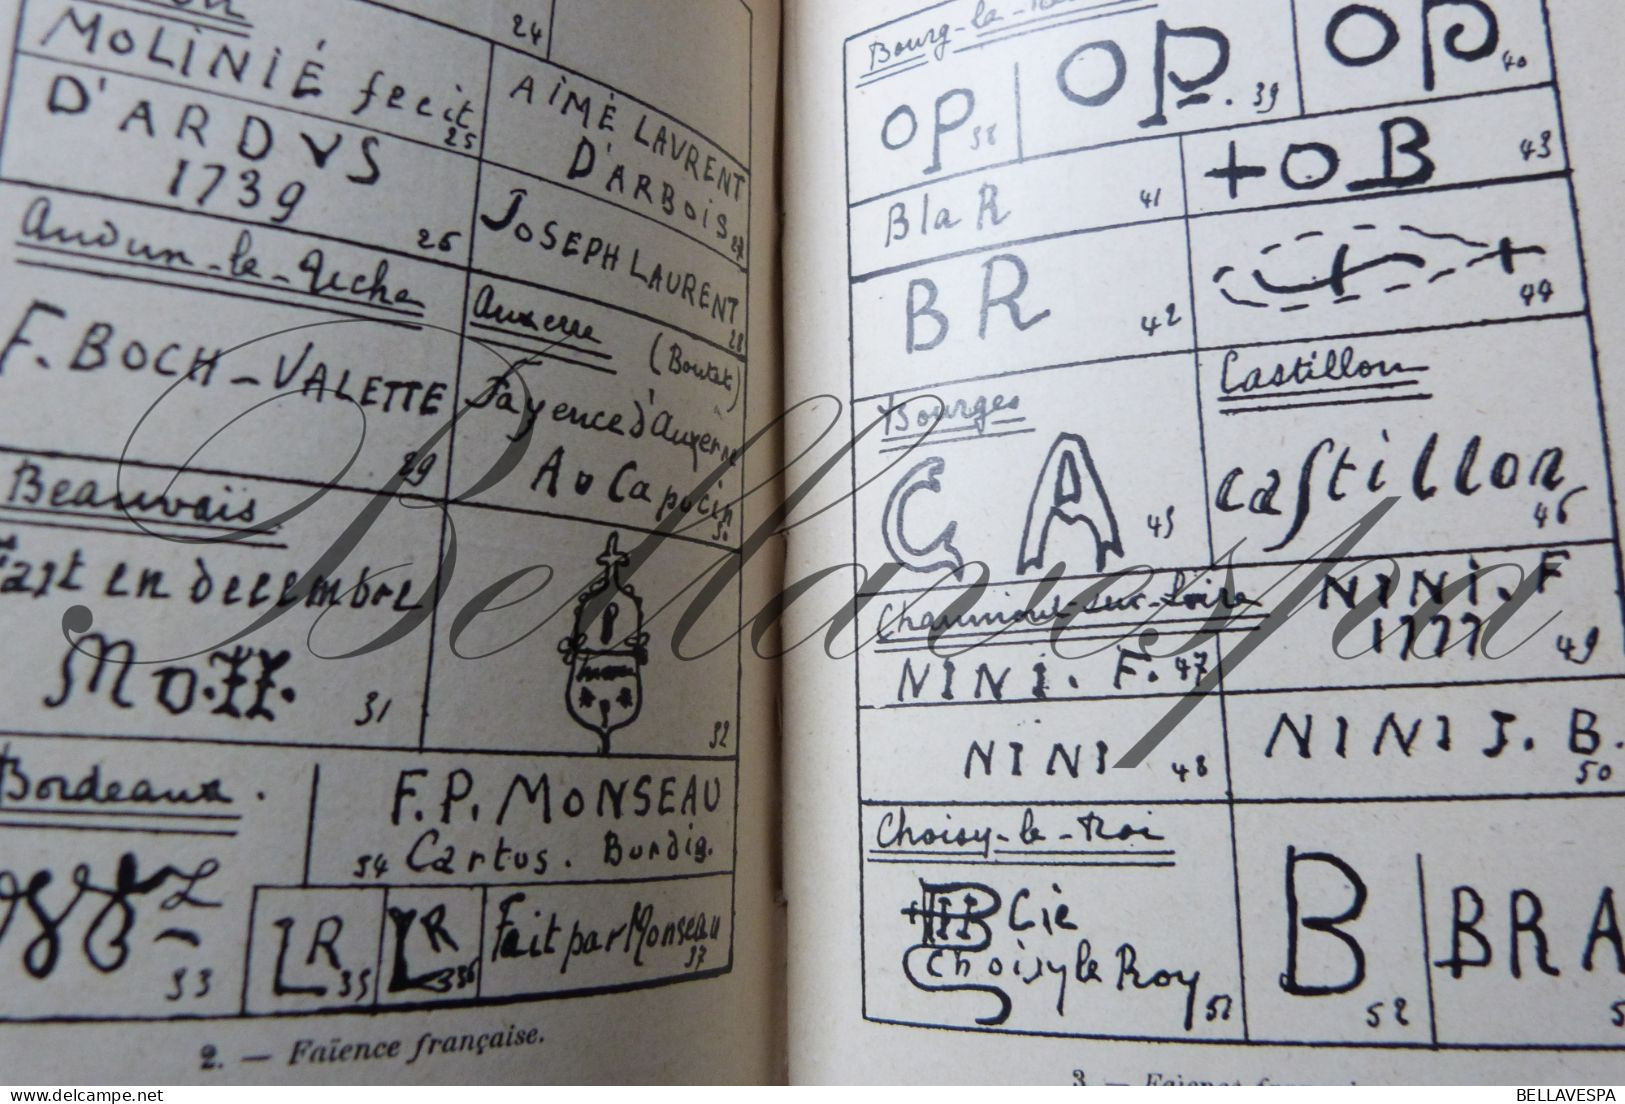 24
MOLINIÉ fecit
25
AIMÉ LAVRENT
D'ARBOIS
27
D'ARDVS
1739
26
JOSEPH LAURENT
28
Audun-le-Tiche
F. BOCH-VALETTE
29
Auxerre
(Boutet)
Fayence d'Auxerre
Au Capucin
30
Beauvais
Fast en decembre
31
32
Bordeaux.
33
F.P. MONSEAU
34 Cartus. Burdig.
LR 35
LR 36
Fait par Monseau
37
2. — Faïence française.
OP 38
OP. 39
OP 40
BlaR 41
+OB 43
BR 42
44
Bourges
CA 45
Castillon
castillon
46
Chaumont-sur-Loire
NINI. F. 47
NINI. F
1777
49
NINI 48
NINI J. B.
50
Choisy-le-Roi
HB Cie
Choisy le Roy
51
B 52
BRA
3. — Faïence
Bellavespa
BELLAVESPA